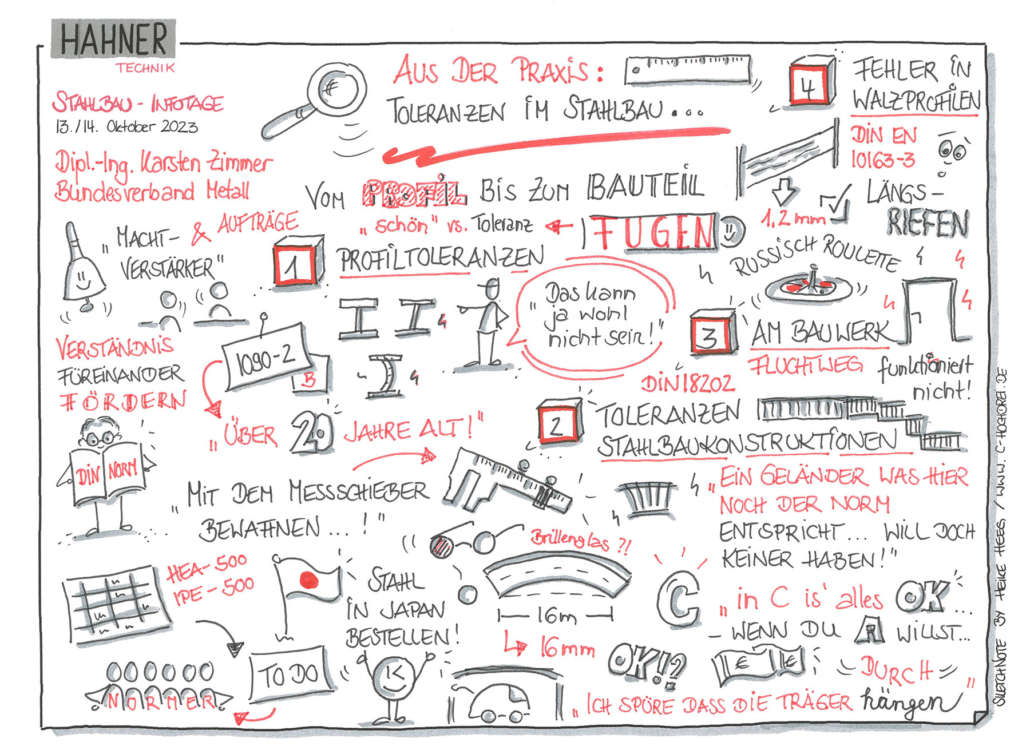 HAHNER
TECHNIK
STAHLBAU - INFOTAGE
13./14. Oktober 2023
Dipl.-Ing. Karsten Zimmer
Bundesverband Metall
€
AUS DER PRAXIS:
TOLERANZEN IM STAHLBAU...
VOM PROFIL BIS ZUM BAUTEIL
"schön" vs. Toleranz
FUGEN
"MACHT-
VERSTÄRKER"
& AUFTRÄGE
VERSTÄNDNIS
FÜREINANDER
FÖRDERN
DIN NORM
1
PROFILTOLERANZEN
"Das kann
ja wohl
nicht sein!"
1090-2
B
"ÜBER 20 JAHRE ALT!"
"MIT DEM MESSSCHIEBER
BEWAFFNEN...!"
4
FEHLER IN
WALZPROFILEN
DIN EN
10163-3
1,2 mm
LÄNGS-
RIEFEN
RUSSISCH ROULETTE
3
AM BAUWERK
FLUCHTWEG
funktioniert
nicht!
DIN 18202
2
TOLERANZEN
STAHLBAUKONSTRUKTIONEN
"EIN GELÄNDER WAS HIER
NOCH DER NORM
ENTSPRICHT... WILL DOCH
KEINER HABEN!"
HEA-500
IPE-500
STAHL
IN JAPAN
BESTELLEN!
Brillenglas?!
16m
16mm
C
"in C is' alles OK...
- WENN DU A WILLST...
TO DO
NORMER
OK!?
€ €
"ICH SPÖRE DASS DIE TRÄGER DURCH
hängen"
SKETCHNOTE BY HEIKE HEEG / WWW.C-HOCHDREI.DE